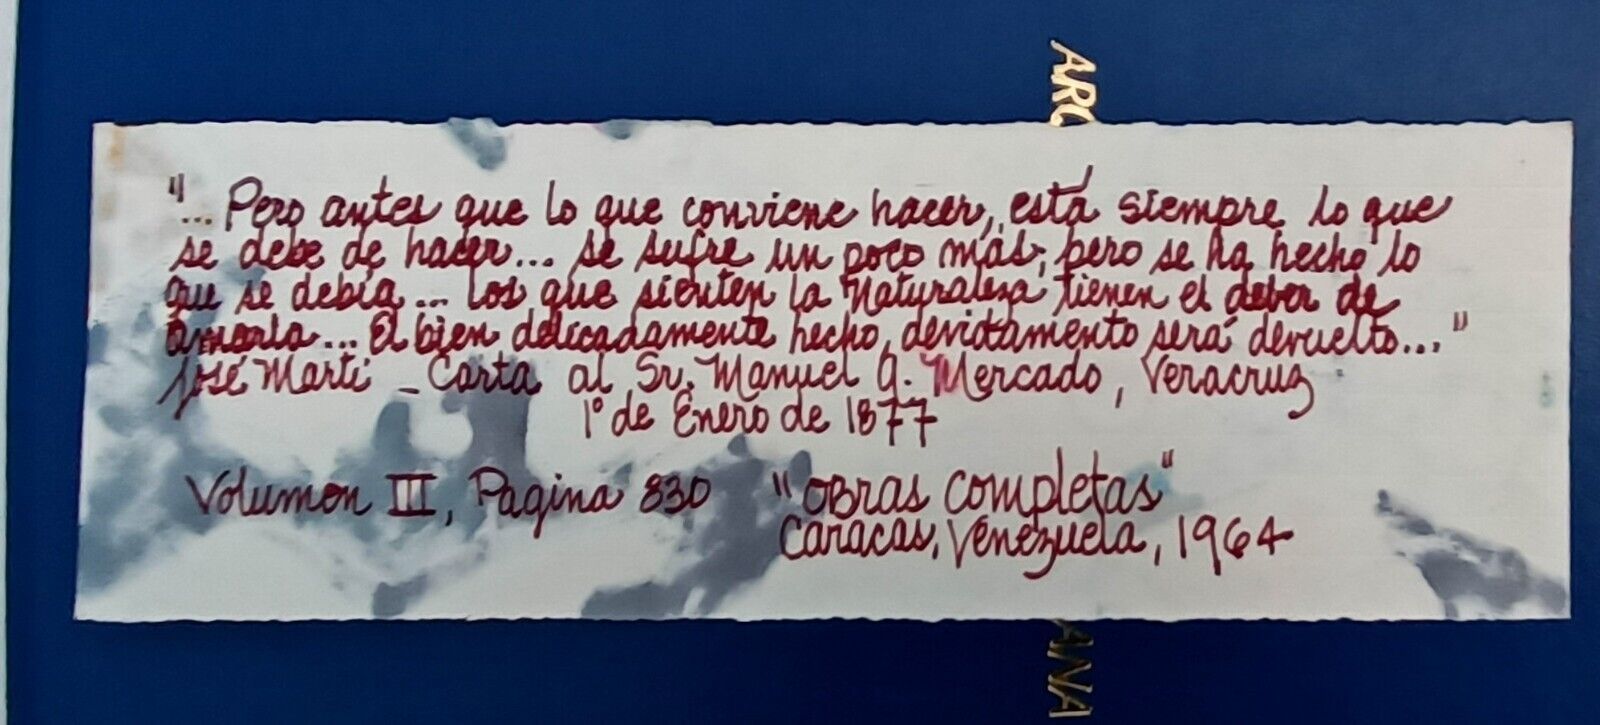 ARQ
"... Pero antes que lo que conviene hacer, está siempre lo que
se debe de hacer... se sufre un poco más; pero se ha hecho lo
que se debía... Los que sienten la Naturaleza tienen el deber de
amarla... El bien delicadamente hecho, devidtamento será devuelto..."
José Martí - Carta al Sr. Manuel A. Mercado, Veracruz
1º de Enero de 1877
Volumen III, Pagina 830
"Obras Completas"
Caracas, Venezuela, 1964
ANA